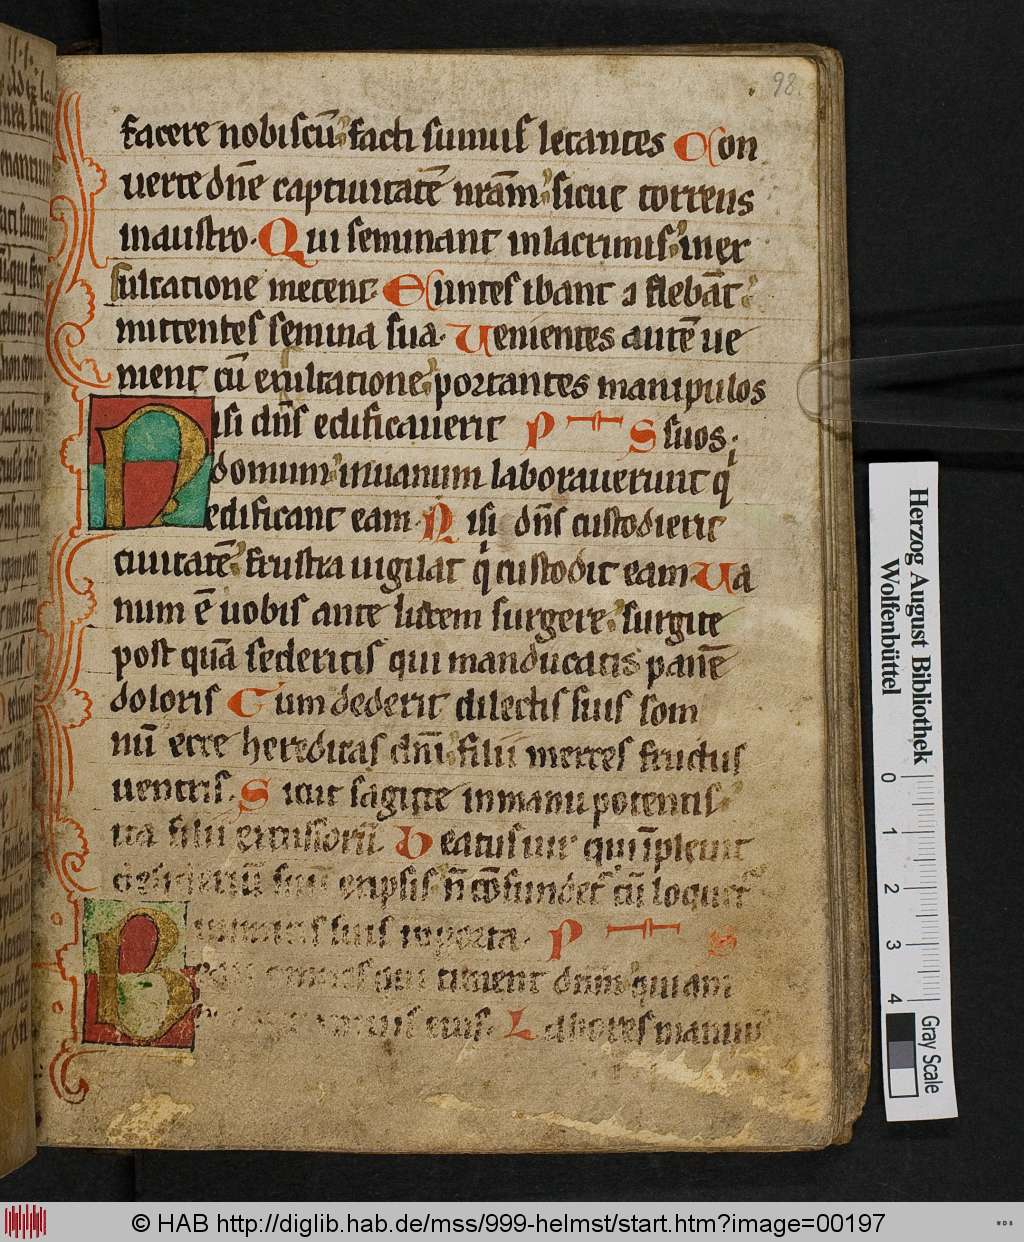 98
facere nobiscū facti sumus letantes Con
uerte dn̄e captiuitatē nr̄am sicut torrens
in austro. Qui seminant in lacrimis in ex
sultatione metent. Euntes ibant ⁊ flebāt
mittentes semina sua. Uenientes autē ue
nient cū exultatione portantes manipulos
Nisi dn̄s edificauerit PS suos.
domum in uanum laborauerunt q̇
edificant eam. Nisi dn̄s custodierit
ciuitatē frustra uigilat q̇ custodit eam Ua
num ē uobis ante lucem surgere surgite
post quā sederitis qui manducatis panē
doloris Cum dederit dilectis suis som
nū ecce hereditas dn̄i filii merces fructus
uentris. Sicut sagitte in manu potentis
ita filii excussorū. Beatus uir qui īpleuit
desideriū suū ex ipsis n̄ cōfundet᷑ cū loquet᷑
inimicis suis in porta. PS
Beati omnes qui timent dnm̄ qui am
in uiis eius. Labores manuū
Herzog August Bibliothek
Wolfenbüttel
0 1 2 3 4
Gray Scale
© HAB http://diglib.hab.de/mss/999-helmst/start.htm?image=00197